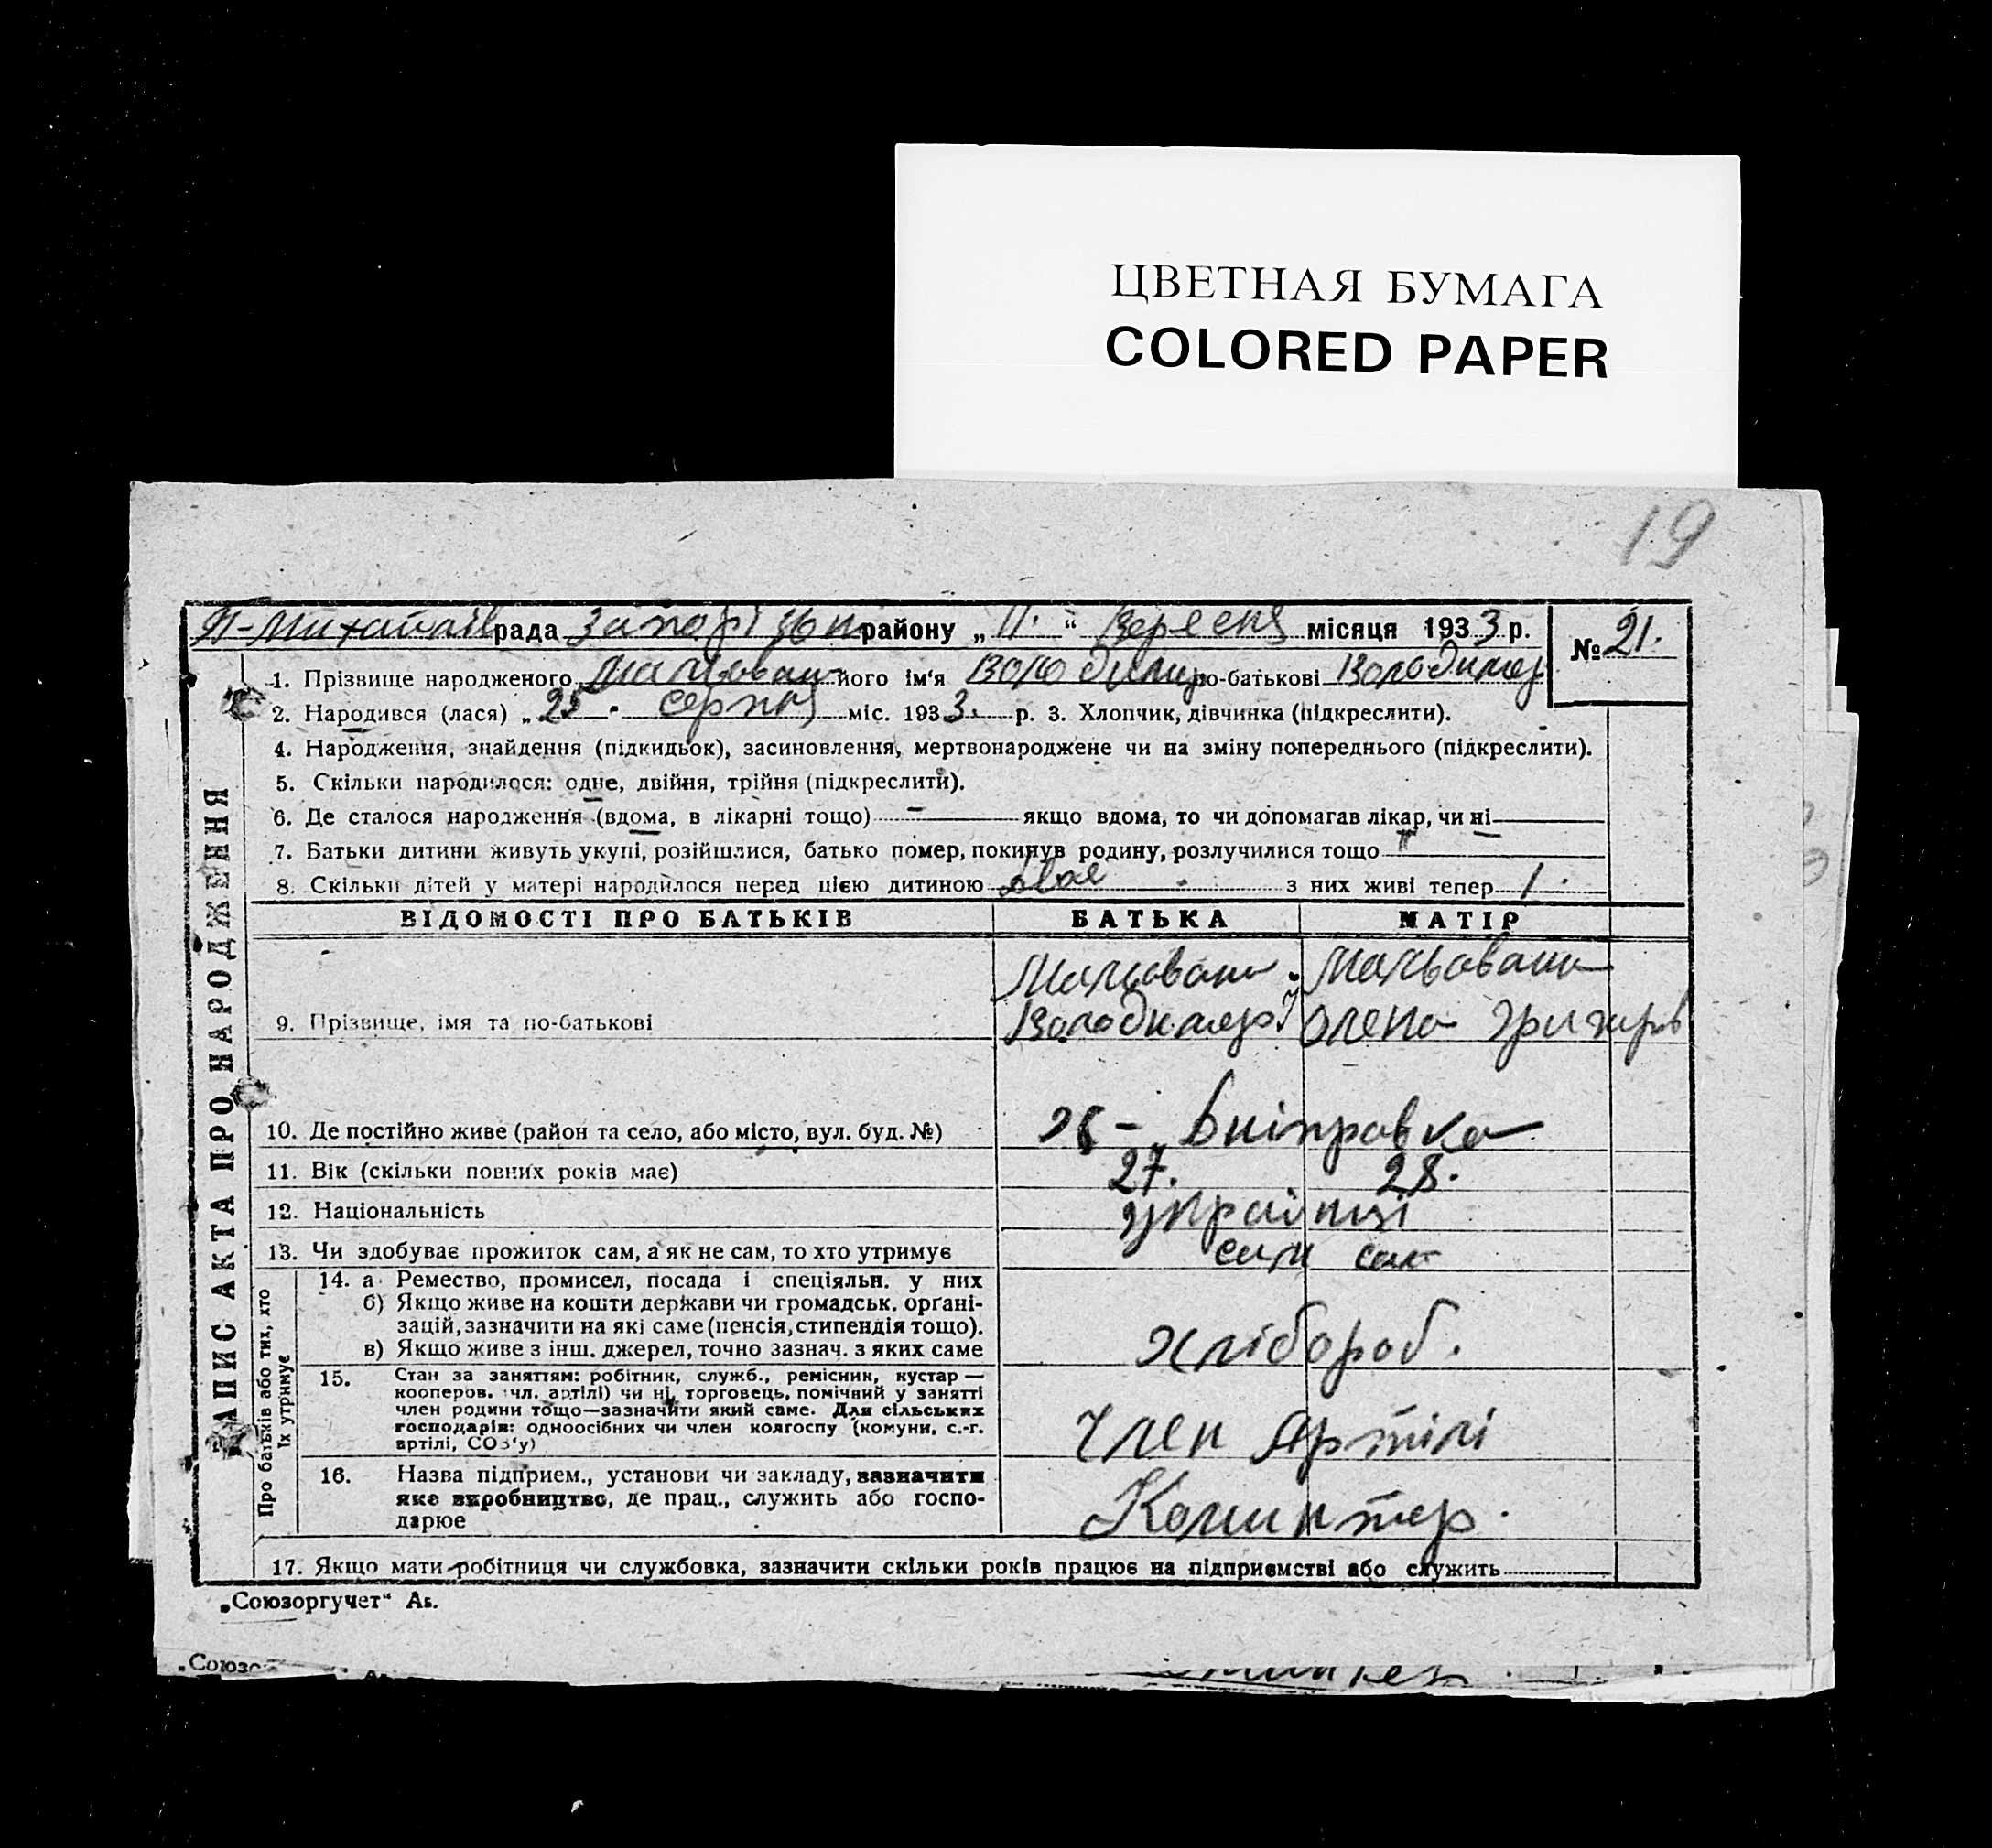 ЦВЕТНАЯ БУМАГА
COLORED PAPER
19
П-Михайлів рада Запорізьк району „ 11. “ Вересня місяця 1933 р. № 21.
1. Прізвище народженого Мальован його ім‘я Володимир по-батькові Володимир
2. Народився (лася) „ 25 . серпня міс. 1933. р. 3. Хлопчик, дівчинка (підкреслити).
4. Народження, знайдення (підкидьок), засиновлення, мертвонароджене чи на зміну попереднього (підкреслити).
5. Скільки народилося: одне, двійня, трійня (підкреслити).
6. Де сталося народження (вдома, в лікарні тощо) – якщо вдома, то чи допомагав лікар, чи ні
7. Батьки дитини живуть укупі, розійшлися, батько помер, покинув родину, розлучилися тощо
8. Скільки дітей у матері народилося перед цією дитиною двоє з них живі тепер 1.
ЗАПИС АКТА ПРО НАРОДЖЕННЯ
ВІДОМОСТІ ПРО БАТЬКІВ БАТЬКА МАТІР
Мальован Мальована
9. Прізвище, імя та по-батькові Володимир Олена Григорів
10. Де постійно живе (район та село, або місто, вул. буд. №) Дніпровка
11. Вік (скільки повних років має) 27. 28.
12. Національність українці
13. Чи здобуває прожиток сам, а як не сам, то хто утримує сам сам
Про батьків або тих, хто їх утримує
14. а Ремество, промисел, посада і спеціяльн. у них
б) Якщо живе на кошти держави чи громадськ. органі-
зацій, зазначити на які саме (пенсія, стипендія тощо).
в) Якщо живе з інш. джерел, точно зазнач. з яких саме
хлібороб.
15. Стан за заняттям: робітник, служб., ремісник, кустар —
кооперов. чл. артілі) чи ні, торговець, помічний у занятті
член родини тощо—зазначити який саме. Для сільських
господарів: одноосібних чи член колгоспу (комуни, с.-г.
артілі, СОЗ‘у)
Член Артілі
16. Назва підприєм., установи чи закладу, зазначити
яке виробництво, де прац., служить або госпо-
дарює
Комінтер.
17. Якщо мати робітниця чи службовка, зазначити скільки років працює на підприємстві або служить
„Союзоргучет“
„Союзо